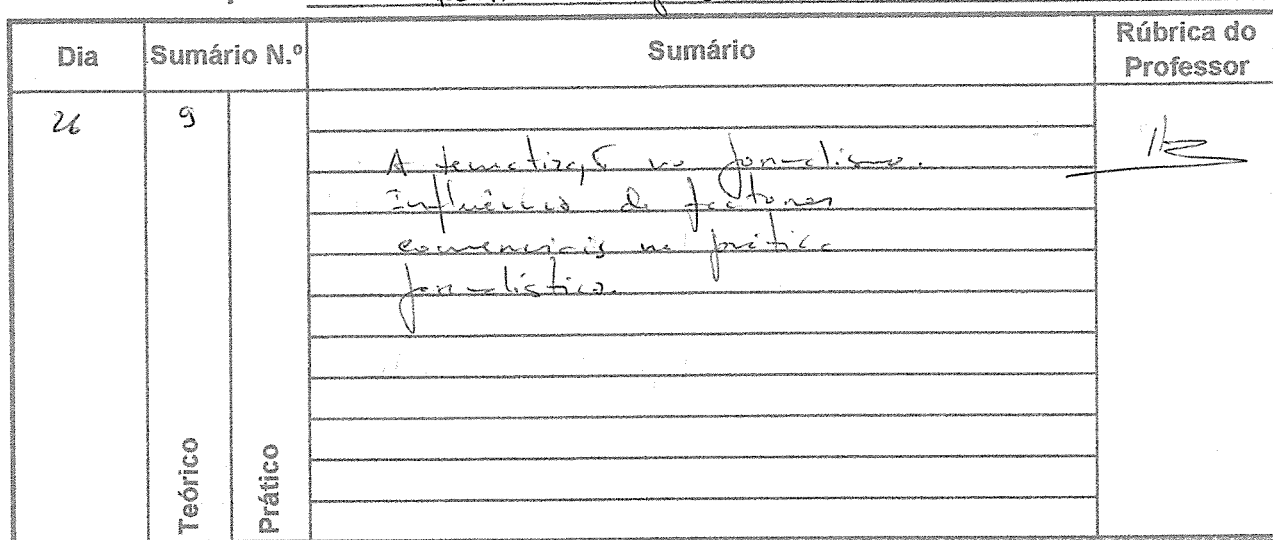 Dia Sumário N.º Sumário Rúbrica do Professor
26 9
A tematização no jornalismo.
Influência de factores
comerciais na prática
jornalística.
Teórico Prático